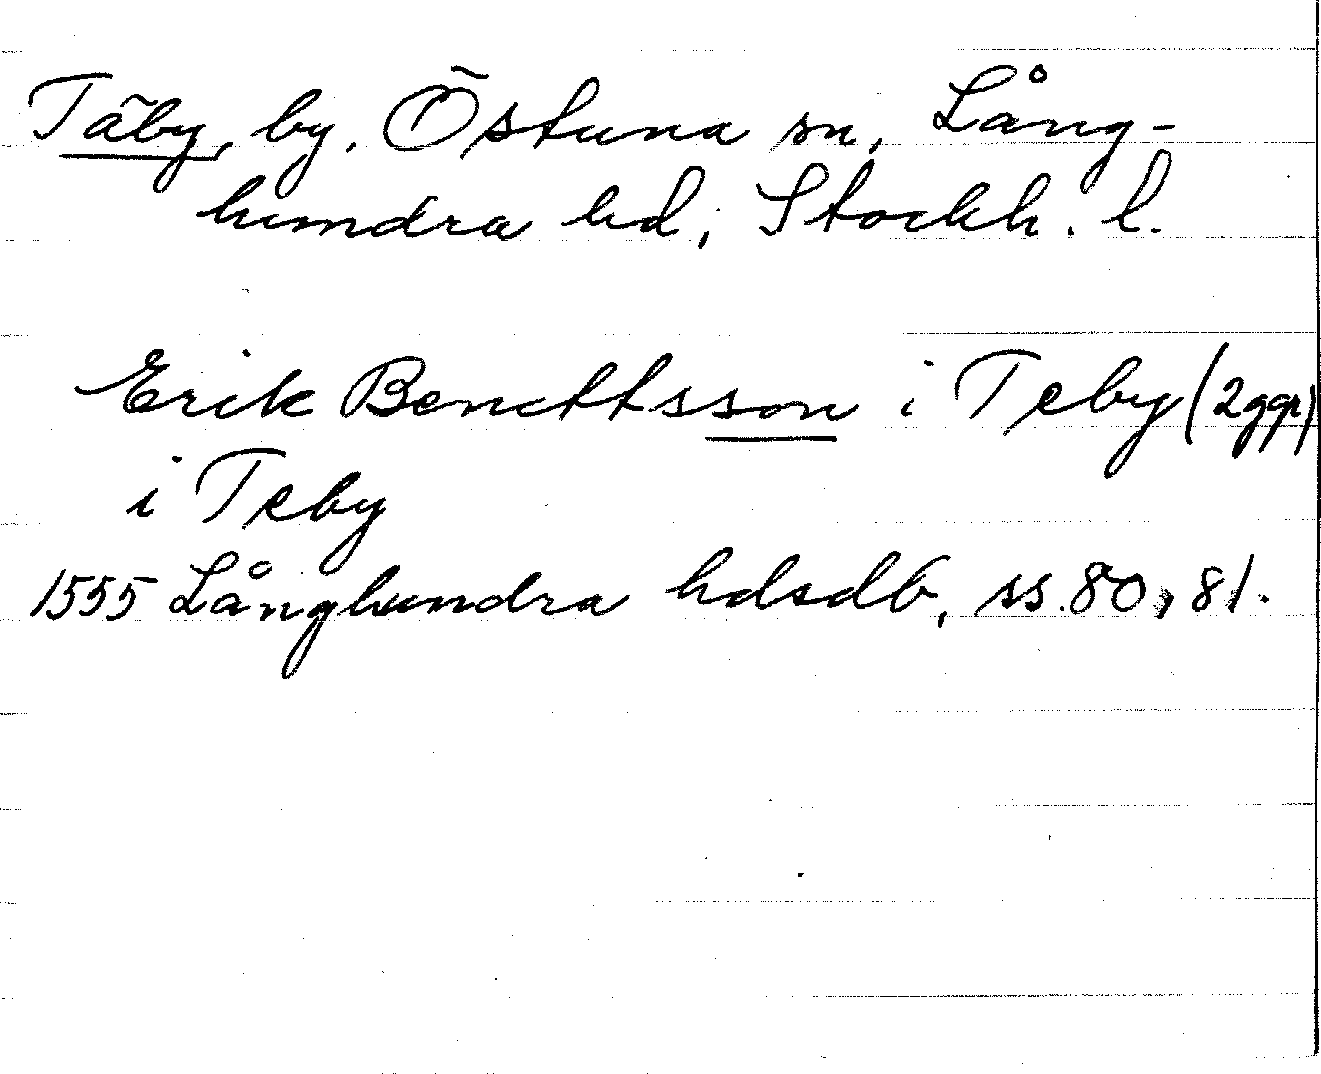 Täby, by, Östuna sn, Lång-
hundra hd, Stockh. l.
Erik Bencttsson i Teby (2 ggr)
i Teby
1555 Långhundra hdsdb, ss. 80, 81.